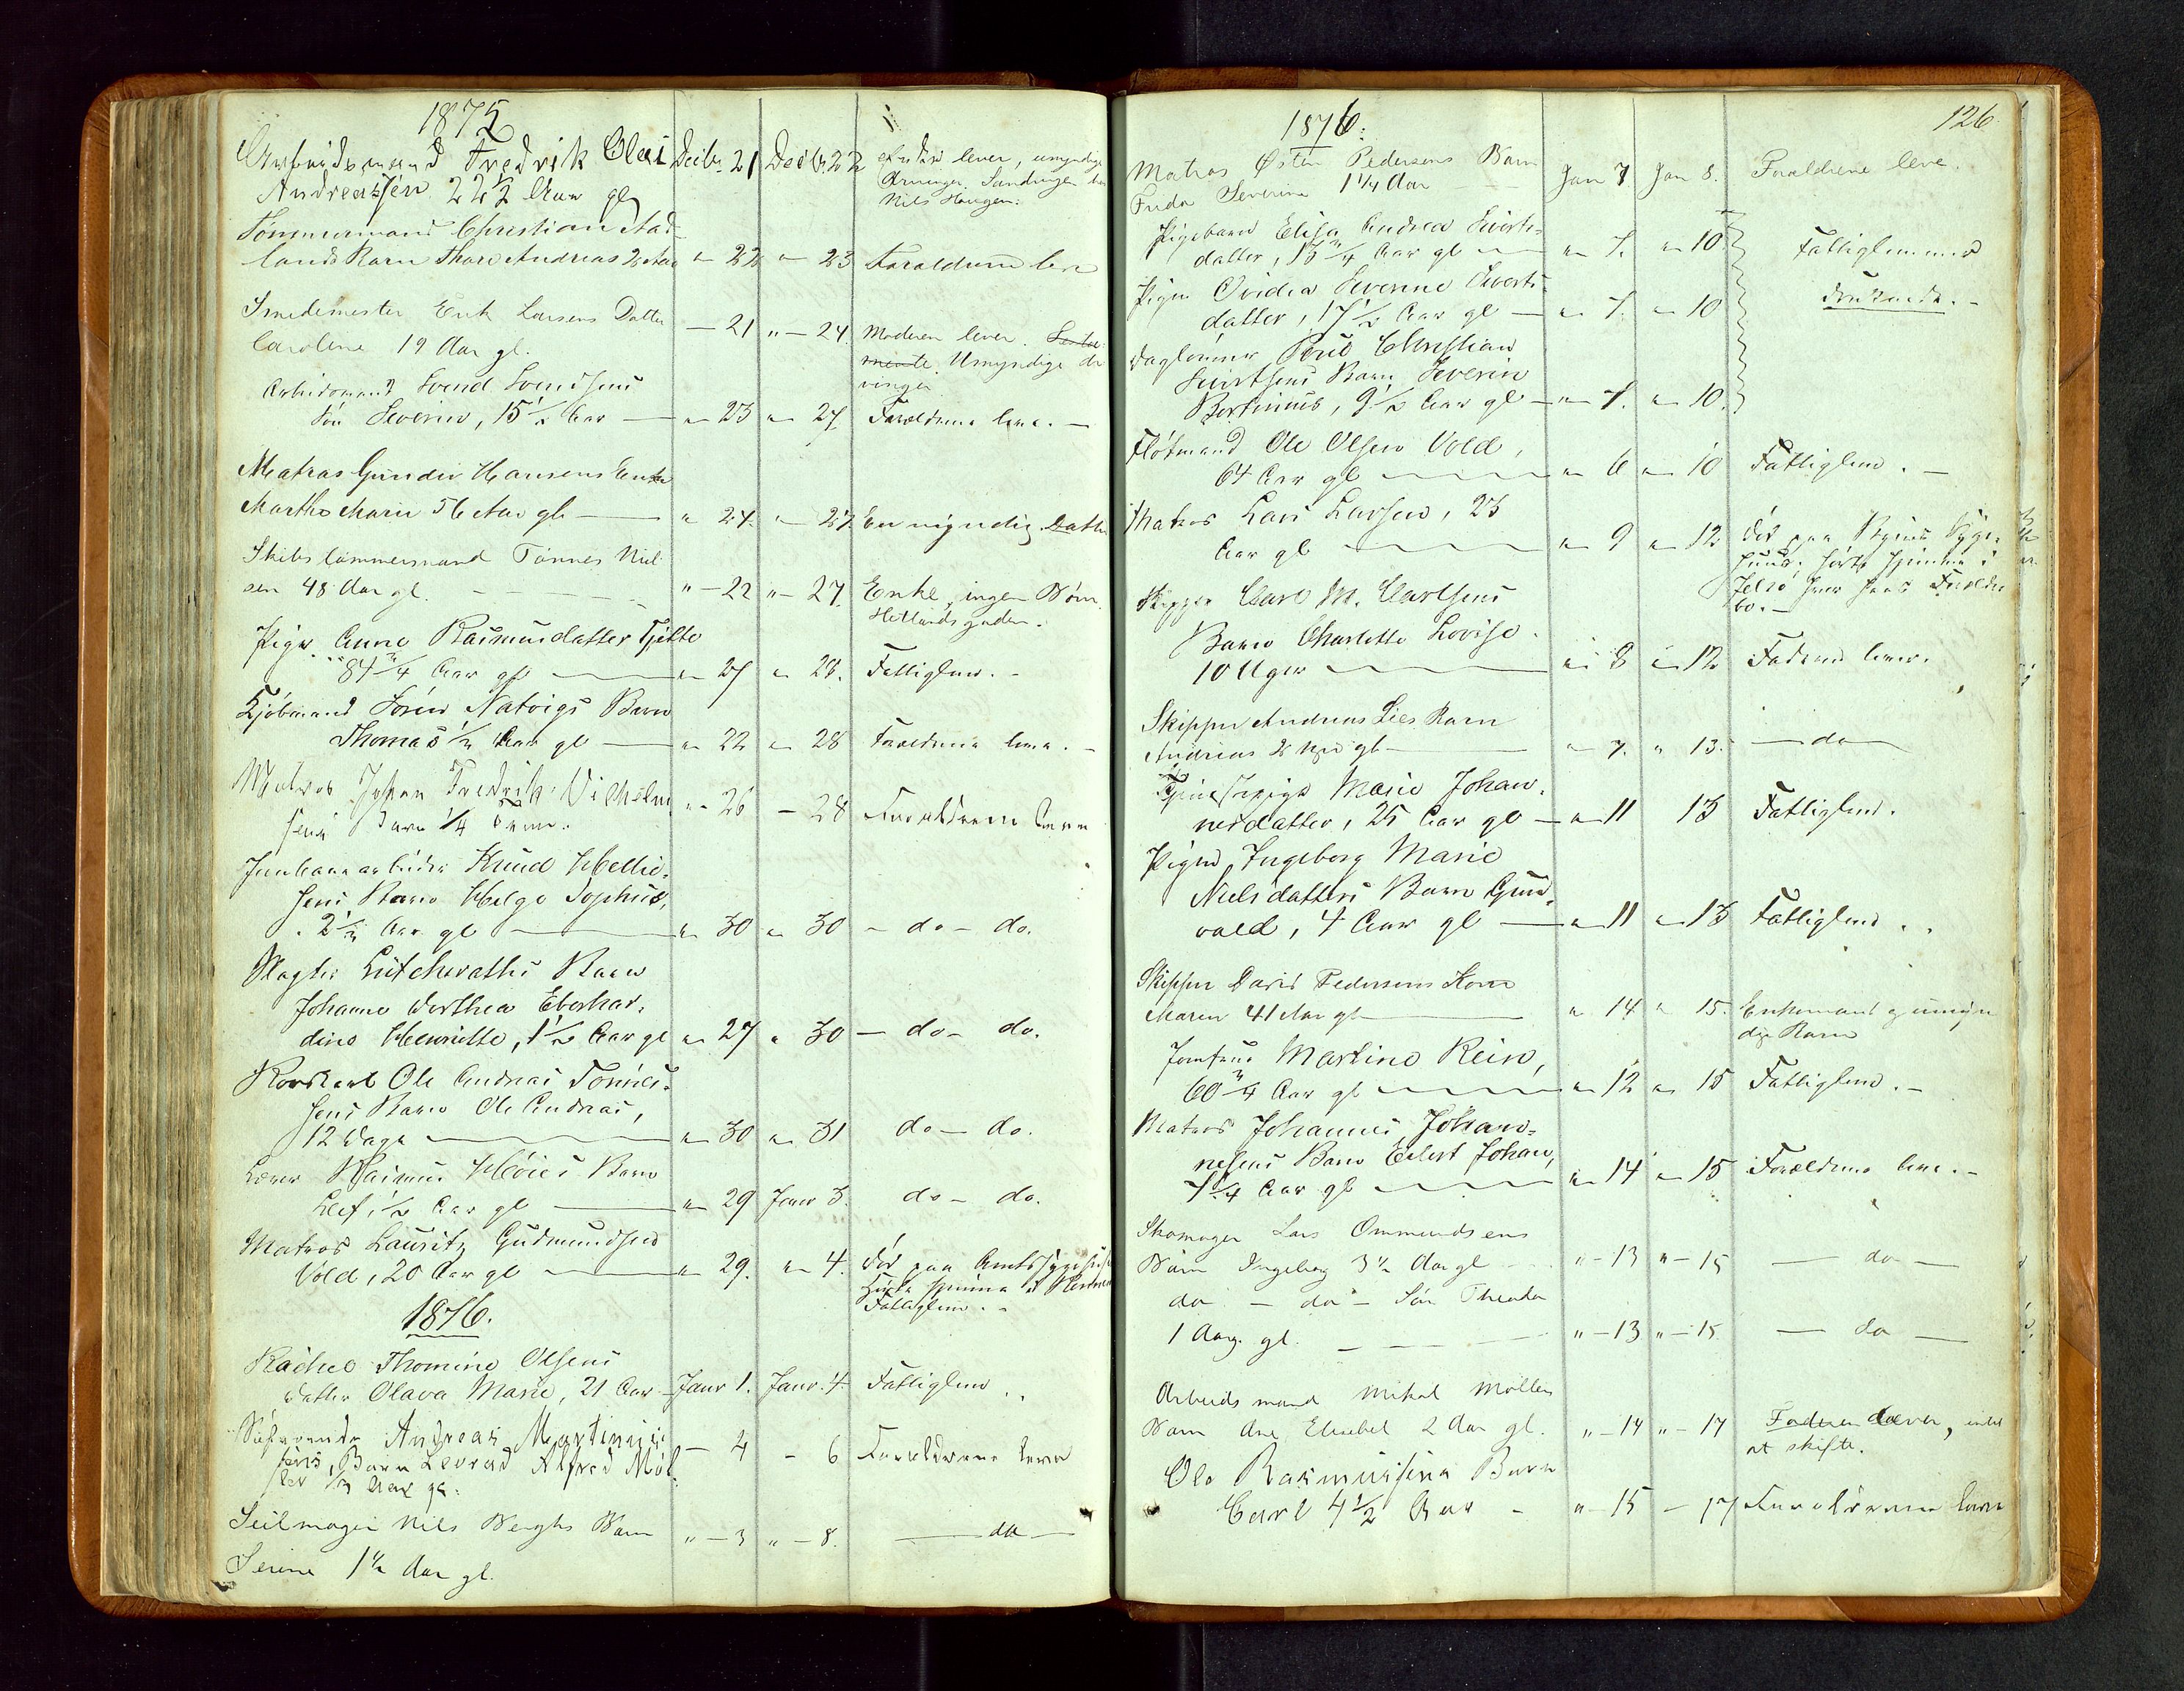 1875
Arbeidsmand Fredrik Olai Decbr. 21 Decbr. 22 lever, umyndige
Andreassen 22 1/2 Aar gl Arvinger. Sandvigen
Nils Haugen.
Tømmermand Christian Aad-
lands Barn Thore Andreas 2 Aar " 22 " 23 Forældrene leve
Smedemester Erik Larsens Datter
Caroline 19 Aar gl. - 21 " - 24 Moderen lever.
Umyndige Ar
vinger
Arbeidsmand Svend Svendsens
Søn Severin, 15 1/2 Aar " 23 " 27 Forældrene leve. -
Matros Gunder Hansens Enke
Marthe Marie 56 Aar gl " 24. " 27. En myndig Datter
Skibstømmermand Tønnes Niel
sen 48 Aar gl. " - 22 " - 27. Enke, ingen Børn.
Hetlandsgaden.
Pige Anne Rasmusdatter Tjette
84 3/4 Aar gl " 27 " 28. Fattiglem. -
Kjøbmand Søren Natvigs Barn
Thomas 1/2 Aar gl " 22 " 28 Forældrene leve. -
Matros Johan Fredrik Vilhelm
sens Barn 1/4 Time. " 26 - 28 Forældrene leve
Jernbanearbeider Knud Hellie-
sens Barn Helge Sophus,
2 1/2 Aar gl " 30 " 30 - do - do.
Slagter Lütcheraths Barn
Johanne Dorthea Eberhar-
dine Henriette, 1 1/2 Aar gl " 27 " 30 - do - do.
Ole Andreas Tønnes-
sens Barn Ole Andreas,
12 Dage " 30 " 31 do - do.
Lærer Rasmus Høies Barn
Leif, 1/2 Aar gl " 29 Janr 3. do - do.
Matros Lauritz Gudmundsen
Vold, 20 Aar gl " 29. " 4. Død paa Amtssygehuset
Hjemme i
Fattiglem. -
1876.
Rachel Thomine Olsens
Datter Olava Marie, 21 Aar Janr 1. Janr. 4. Fattiglem
Søfarende Andreas Martinius-
sens, Barn Leonard Alfred Møl-
ler 1/2 Aar gl. - 4 - 6 Forældrene leve
Seilmager Nils Berghs Barn " - 3 " - 8. - do -
Serine 1 1/2 Aar gl.
126.
1876.
Matros Østen Pedersens Barn
Frida Severine 1 1/4 Aar Jan 7 Jan 8. Forældrene leve.
Pigebarn Elisa Andrea Siverts-
datter, 15 3/4 Aar gl " 7. " 10 Fattiglemmer
Pigen Ovidia Severine Siverts-
datter, 17 1/2 Aar gl " 7. " 10 druknede. -
Dagleiner Poul Christian
Sivertsens Barn Severin
Bertinius, 9 1/2 Aar gl " 7. " 10.
Fløtmand Ole Olsen Vold,
64 Aar gl " 6 " 10 Fattiglem. -
Matros Lars Larsen, 23
Aar gl " 9 " 12 Død paa Byens Syge-
huus. hørte hjemme i
Jelsø hvor hans Forældre
bo. -
Skipper Carl M. Carlsens
Barn Charlotte Lovise.
10 Uger " 8 " 12 Faderen lever.
Skipper Andreas Lies Barn
Andreas 2 gl " 7. " 13. - do -
Marie Johan-
nesdatter, 25 Aar gl " 11 13 Fattiglem.
Pigen Ingeborg Marie
Nielsdatters Barn Gun-
vald, 4 Aar gl " 11 " 13 Fattiglem
Skipper David Pedersens Kone
Maren 41 Aar gl " 14 " 15. Enkemand umyn
dige Børn
Jomfrue Martine Rein,
60 3/4 Aar gl " 12 " 15 Fattiglem. -
Matros Johannes Johan-
nesens Barn Eilert Johan,
7 1/4 Aar gl " 14 " 15 Forældrene leve. -
Skomager Lars Ommundsens
Barn Ingeborg 3 1/2 Aar gl " - 13 " - 15 - do -
do - do - Søn Theodor
1 Aar. gl. " - 13 " - 15 - do -
Arbeidsmand Mikal Møllers
Barn Ane Elisabet 2 Aar gl. " - 14 " - 17 Faderen lever, intet
at skifte.
Ole Rasmussens Barn
Carl 4 1/2 Aar - " - 15 - 17 Forældrene leve